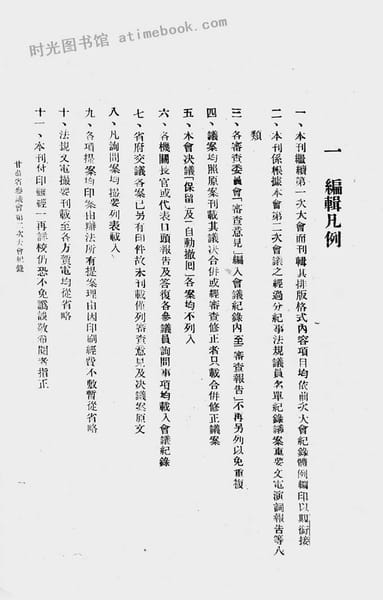 时光图书馆 atimebook.com
一 編輯凡例
一、本刊繼續第一次大會而刊輯其排版格式內容項目均依前次大會紀錄體例編印以取銜接
二、本刊係根據本會第二次會議之經過分紀事法規議員名單紀錄議案重要文電演詞報告等八
類
三、各審查委員會「審查意見」編入會議紀錄內至「審查報告」不再另列以免重複
四、議案均照原案刊載其議決合併或經審查修正者只載合併修正議案
五、本會决議「保留」及「自動撤回」各案均不列入
六、各機關長官或代表口頭報告及答復各參議員詢問事項均載入會議紀錄
七、省府交議各案已另有印件故未刊載僅列審查意見及决議案原文
八、凡詢問案均撮要列表載入、
九、各項提案均印案由辦法所有提案理由因印刷經費不敷暫從省略
十、法規文電撮要刊載至各方賀電均從省略
十一、本刊付印雖經一再詳校仍恐不免譌誤敬希閱者指正
甘肅省參議會第二次大會紀錄
一